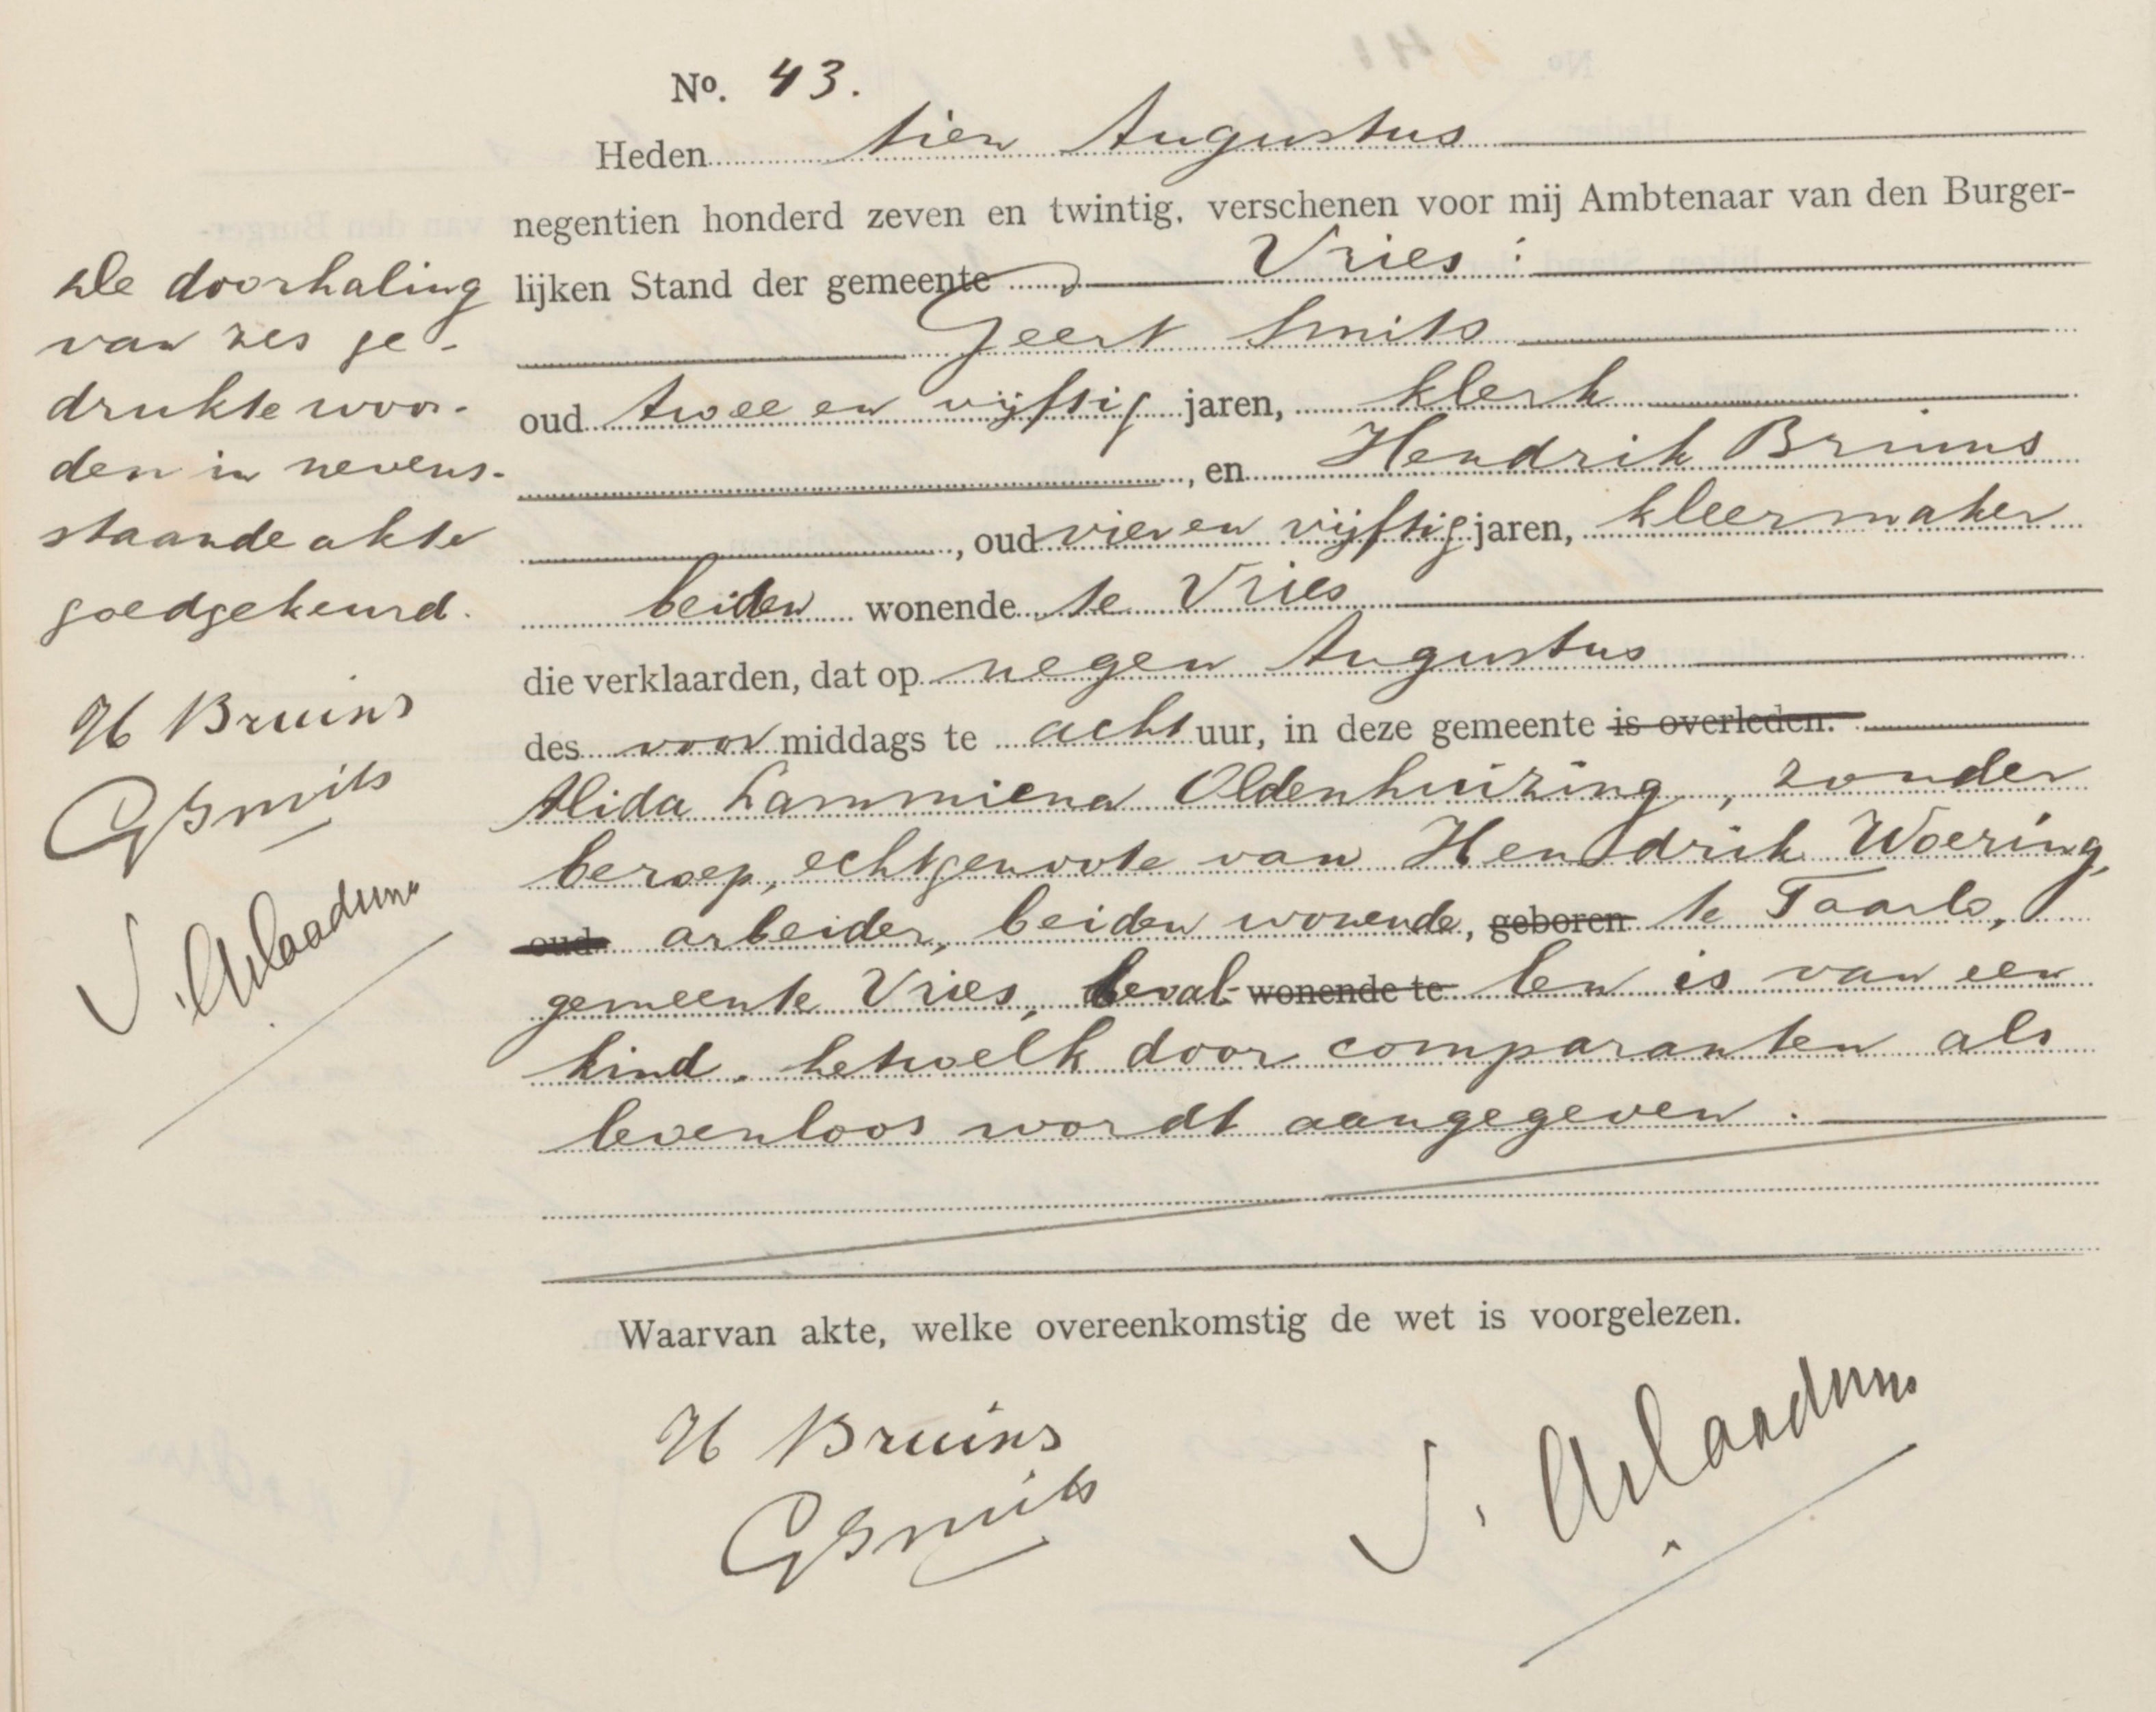 No. 43.
Heden tien Augustus
negentien honderd zeven en twintig, verschenen voor mij Ambtenaar van den Burger-
lijken Stand der gemeente Vries :
Geert Smits
oud twee en vijftig jaren, klerk
, en Hendrik Bruins
, oud vier en vijftig jaren, kleermaker
beiden wonende te Vries
die verklaarden, dat op negen Augustus
des voor middags te acht uur, in deze gemeente is overleden.
Alida Lammiena Oldenhuizing, zonder
beroep, echtgenoote van Hendrik Woering,
oud arbeider, beiden wonende, geboren te Taarlo,
gemeente Vries, beval- wonende te len is van een
kind, hetwelk door comparanten als
levenloos wordt aangegeven.
Waarvan akte, welke overeenkomstig de wet is voorgelezen.
H Bruins
GSmits
De doorhaling
van zes ge-
drukte woor-
den in nevens-
staande akte
goedgekeurd.
H Bruins
GSmits